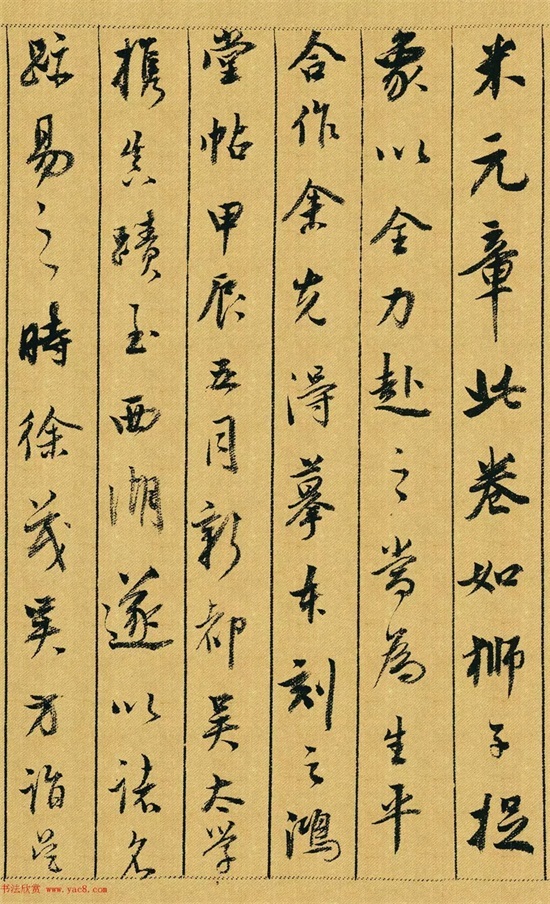 米元章此卷如獅子捉
象以全力赴之當為生平
合作余先得摹本刻之鴻
堂帖甲辰五月新都吳太學
攜真蹟至西湖遂以諸名
跡易之時徐茂吳方詣吳
书法欣赏 www.yac8.com